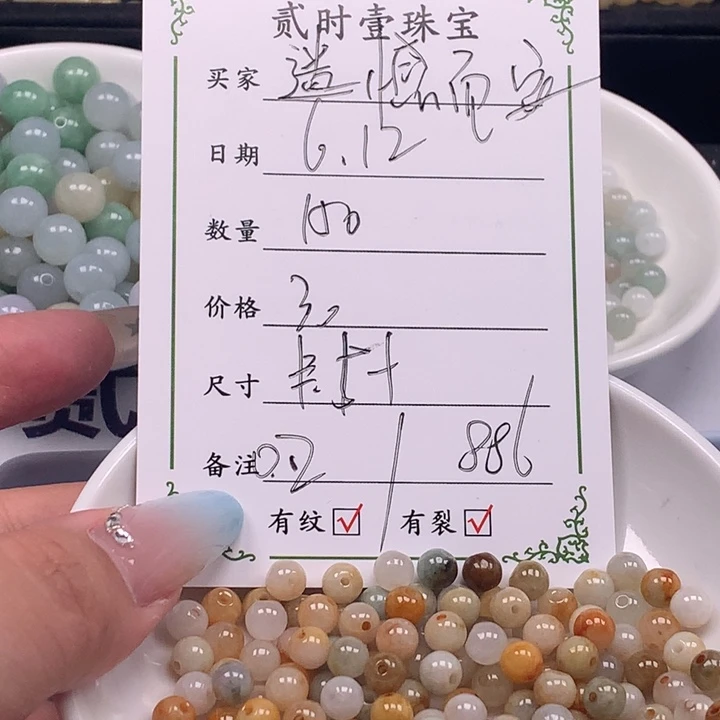 贰时壹珠宝
买家 遗憾而安
日期 6.12
数量 100
价格 3
尺寸
备注 0.2 / 886
有纹 ☑ 有裂 ☑
贰